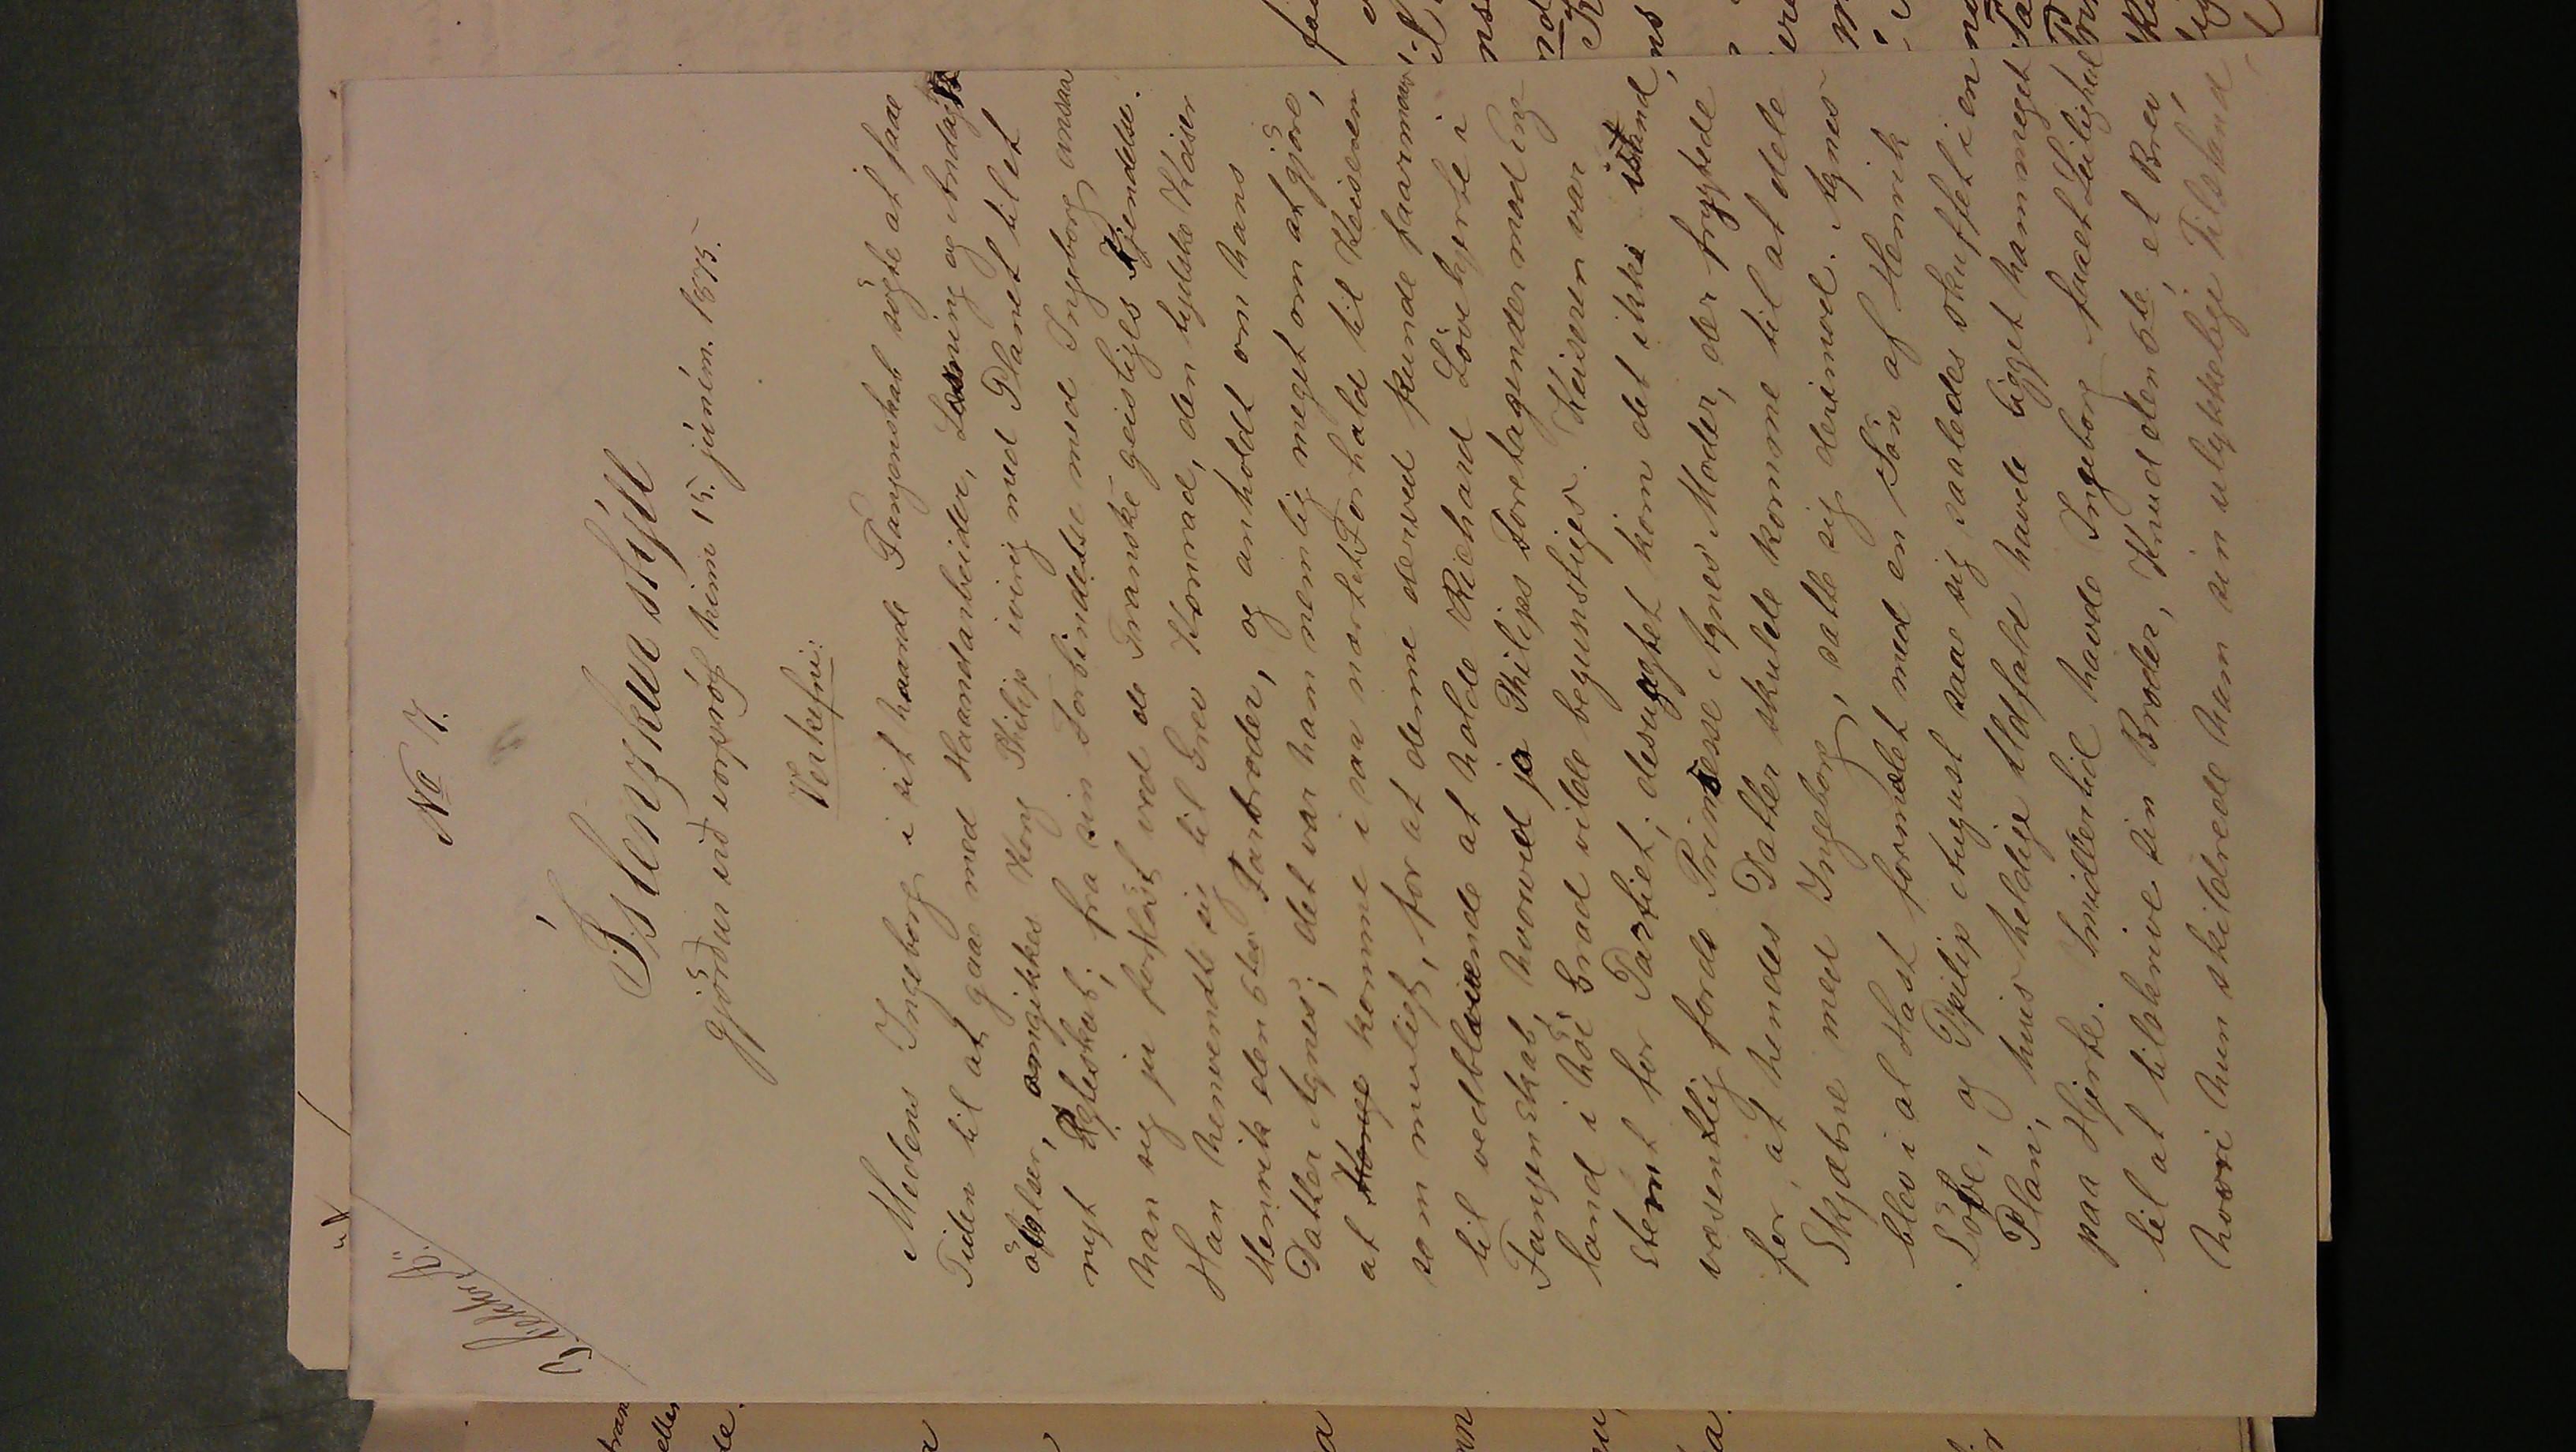 No 17.
Íslenzkur stýll
gjörður við vorpróf hinn 15. júním. 1875.
Verkefni:
Medens Ingeborg i sit haarde Fangenskab sögte at faae
Tiden til at gaae med Haandarbeider, Læsning og Andagts
övelser, omgikkes Kong Philip ivrig med Planet til et
nyt Ægteskab; fra sin Forbindelse med Ingeborg ansaa
han sig jo forlöst ved de Franske geistliges Kjendelse.
Han henvendte sig til Grev Konrad, den tydske Keiser
Henrik den 6tes Farbroder, og anholdt om hans
Datter Agnes; det var ham nemlig meget om at gjöre,
at komme i saa nært Forhold til Keiseren
som muligt, for at denne derved kunde faaes
til vedblivende at holde Richard Lövehjerte i
Fangenskab, hvorved jo Philips Foretagender mod Eng-
land i höi Grad vilde begunstiges. Keiseren var
stemt for Partiet; desuagtet kom det ikke istand,
væsentlig fordi Prinsesse Agnes' Moder, der frygtede
for, at hendes Datter skulde komme til at dele
Skjæbne med Ingeborg, satte sig derimod. Agnes
blev i al Hast formælet med en Sön af Henrik
Löve, og Philip August saae sig saaledes skuffet i en
Plan, hvis heldige Udfald havde ligget ham meget
paa Hjerte. Imidlertid havde Ingeborg faaet Leilighed
til at tilskrive sin Broder, Knud den 6te, et Brev,
hvori hun skildrede ham sin ulykkelige Tilstand